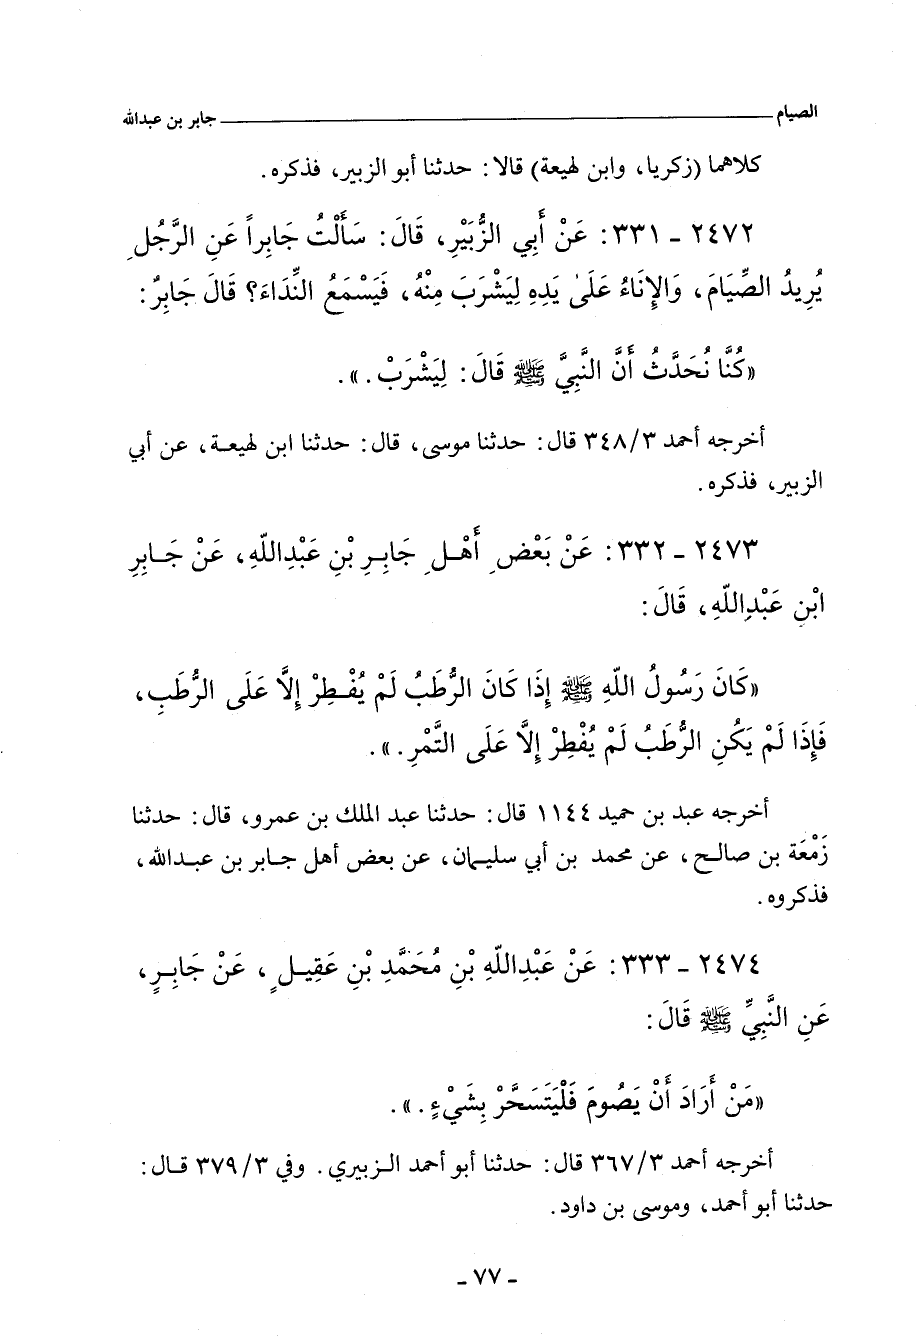 الصيام ـــــ جابر بن عبدالله
كلاهما (زكريا، وابن لهيعة) قالا: حدثنا أبو الزبير، فذكره.
٢٤٧٢ - ٣٣١: عَنْ أَبِي الزُّبَيْرِ، قَالَ: سَأَلْتُ جَابِراً عَنِ الرَّجُلِ
يُرِيدُ الصِّيَامَ، وَالإِنَاءُ عَلَىٰ يَدِهِ لِيَشْرَبَ مِنْهُ، فَيَسْمَعُ النِّدَاءَ؟ قَالَ جَابِرٌ:
«كُنَّا نُحَدَّثُ أَنَّ النَّبِيَّ ﷺ قَالَ: لِيَشْرَبْ.».
أخرجه أحمد ٣٤٨/٣ قال: حدثنا موسى، قال: حدثنا ابن لهيعة، عن أبي
الزبير، فذكره.
٢٤٧٣ - ٣٣٢: عَنْ بَعْضِ أَهْلِ جَابِرِ بْنِ عَبْدِاللّهِ، عَنْ جَابِرِ
ابْنِ عَبْدِاللّهِ، قَالَ:
«كَانَ رَسُولُ اللّهِ ﷺ إِذَا كَانَ الرُّطَبُ لَمْ يُفْطِرْ إِلَّا عَلَى الرُّطَبِ،
فَإِذَا لَمْ يَكُنِ الرُّطَبُ لَمْ يُفْطِرْ إِلَّا عَلَى التَّمْرِ.».
أخرجه عبد بن حميد ١١٤٤ قال: حدثنا عبد الملك بن عمرو، قال: حدثنا
زَمْعَة بن صالح، عن محمد بن أبي سليمان، عن بعض أهل جابر بن عبدالله،
فذكروه.
٢٤٧٤ - ٣٣٣: عَنْ عَبْدِاللّهِ بْنِ مُحَمَّدِ بْنِ عَقِيلٍ، عَنْ جَابِرٍ،
عَنِ النَّبِيِّ ﷺ قَالَ:
«مَنْ أَرَادَ أَنْ يَصُومَ فَلْيَتَسَحَّرْ بِشَيْءٍ.».
أخرجه أحمد ٣٦٧/٣ قال: حدثنا أبو أحمد الزبيري. وفي ٣٧٩/٣ قال:
حدثنا أبو أحمد، وموسى بن داود.
- ٧٧ -